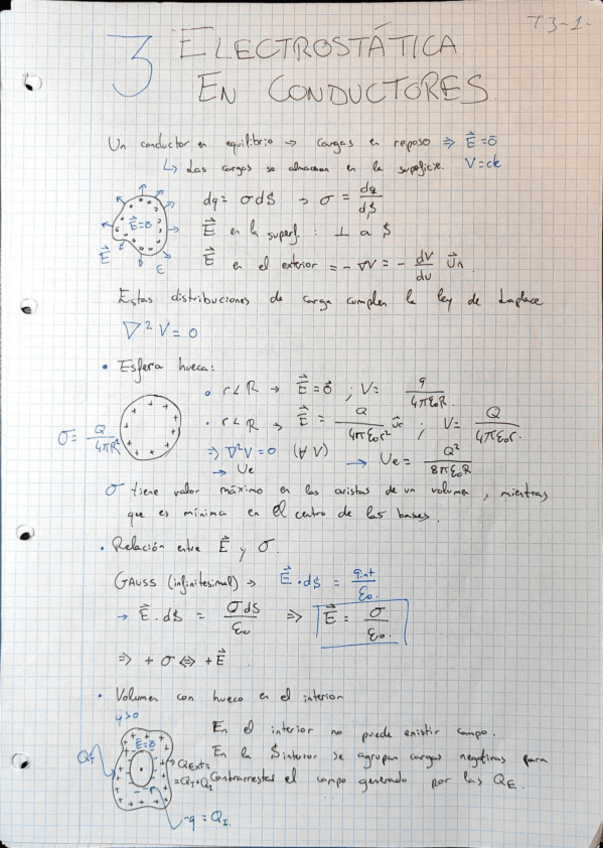 T3-1-
3 ELECTROSTÁTICA
EN CONDUCTORES
Un conductor en equilibrio → cargas en reposo ⇒ E⃗ = 0⃗
↳ Las cargas se almacenan en la superficie. V = cte
dq = σ dS → σ = dq/dS
E⃗ = 0
E⃗ en la superf. : ⊥ a S
E⃗ en el exterior = - ∇V = - dV/du u⃗n
E⃗
E
Estas distribuciones de carga cumplen la ley de Laplace
∇²V = 0
• Esfera hueca:
• r < R → E⃗ = 0⃗ ; V = q/4πε₀R
σ = Q/4πR²
• r < R → E⃗ = Q/4πε₀r² u⃗r ; V = Q/4πε₀r.
⇒ ∇²V = 0 (∀ V) → Ue = Q²/8πε₀R
→ Ue
σ tiene valor máximo en las aristas de un volumen, mientras
que es mínima en el centro de las bases.
• Relación entre E⃗ y σ.
GAUSS (infinitesimal) → E⃗ · dS = qint/ε₀.
→ E⃗ · dS = σ dS/ε₀ ⇒ E⃗ = σ/ε₀.
⇒ + σ ⇔ + E⃗
• Volumen con hueco en el interior
q>0
En el interior no puede existir campo.
E⃗=0
QT
QExt = QT + QI
En la S interior se agrupan cargas negativas para
contrarrestar el campo generado por las QE.
-q = QI.